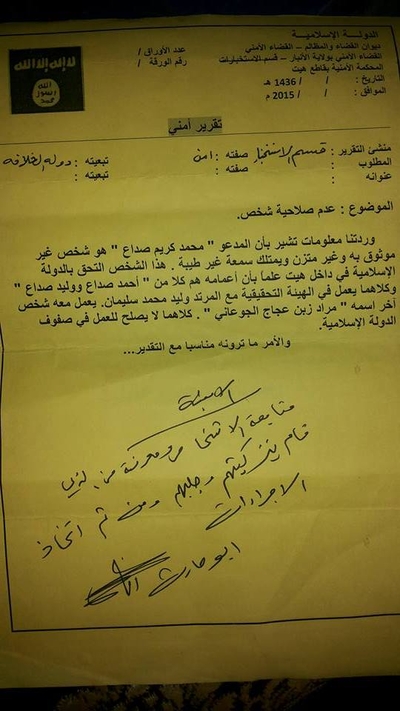 لا إله إلا الله
الله
رسول
محمد
الدولة الإسلامية
ديوان القضاء والمظالم – القضاء الأمني
القضاء الأمني بولاية الأنبار – قسم الاستخبارات
المحكمة الأمنية بقاطع هيت
التاريخ : / / 1436 هـ
الموافق : / / 2015 م
عدد الأوراق /
رقم الورقة /
تقرير أمني
منشئ التقرير : قسم الاستخبار صفته : امن تبعيته : دولة الخلافة
المطلوب : صفته : تبعيته :
عنوانه :
الموضوع : عدم صلاحية شخص.
وردتنا معلومات تشير بأن المدعو " محمد كريم صداع " هو شخص غير
موثوق به وغير متزن ويمتلك سمعة غير طيبة . هذا الشخص التحق بالدولة
الإسلامية في داخل هيت علما بأن أعمامه هم كلا من " أحمد صداع ووليد صداع "
وكلاهما يعمل في الهيئة التحقيقية مع المرتد وليد محمد سليمان. يعمل معه شخص
آخر اسمه " مراد زبن عجاج الجوعاني " . كلاهما لا يصلح للعمل في صفوف
الدولة الإسلامية.
والأمر ما ترونه مناسبا مع التقدير...
متابعة الاشخاص ومعرفة من الذي
قام بتزكيتهم وجلبهم ومن ثم اتخاذ
الاجراءات
ابو حارث